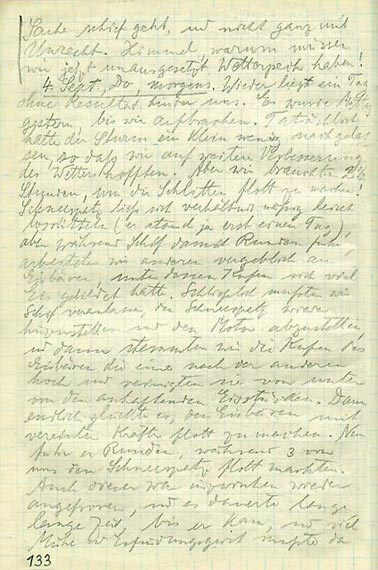 Sache schief geht, und nicht ganz mit
Unrecht. Himmel, warum müssen
wir jetzt unausgesetzt Wetterpech haben!
4. Sept, Do, morgens. Wieder liegt ein Tag
ohne Resultat hinter uns. Es wurde Mittag
gestern, bis wir aufbrachen. Tatsächlich
hatte der Sturm ein klein wenig nachgelas-
sen, so daß wir auf weitere Verbesserung
des Wetters hofften. Aber wir brauchten 2½
Stunden, um die Schlitten flott zu machen!
Schneespatz ließ sich verhältnismäßig leicht
losrütteln (er stand ja erst einen Tag),
aber während Schif damit Runden fuhr,
arbeiteten wir anderen vergeblich am
Eisbären unter dessen Kufen sich viel
Eis gebildet hatte. Schließlich mußten wir
Schif veranlassen, den Schneespatz wieder
hinzustellen und den Motor abzustellen,
und dann stemmten wir die Kufen des
Eisbären die eine nach der anderen
hoch und reinigten sie von unten
von den anhaftenden Dann
endlich glückte es, den Eisbären mit
vereinten Kräften flott zu machen. Nun
fuhr er Runden, während 3 von
uns den Schneespatz flott machten.
Auch dieser war inzwischen wieder
angefroren, und es dauerte lange
lange Zeit, bis er kam, und viel
Mühe und Erfindungsgeist mußte da
133